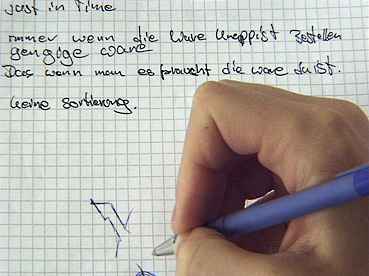 just in Time
immer wenn die Ware knapp ist Bestellen
gengige ware
Das wenn man es braucht die ware da ist.
keine Sortierung.